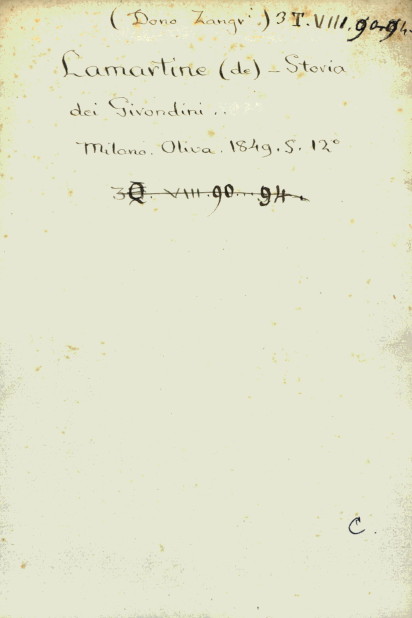 (Dono Zangri.) 3 T. VIII. 90.94.
Lamartine (de) – Storia
dei Girondini..
Milano. Oliva. 1849. 5. 12°
3Q. VIII. 90... 94.
C.